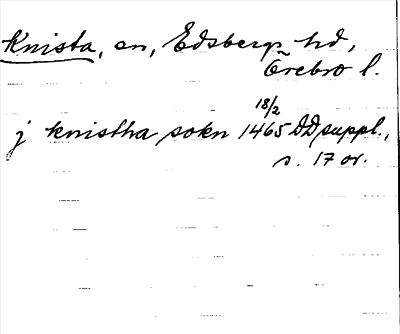 Knista, sn, Edsbergs hd,
Örebro l.
18/2
j knistha sokn 1465 DD suppl.,
s. 17 or.